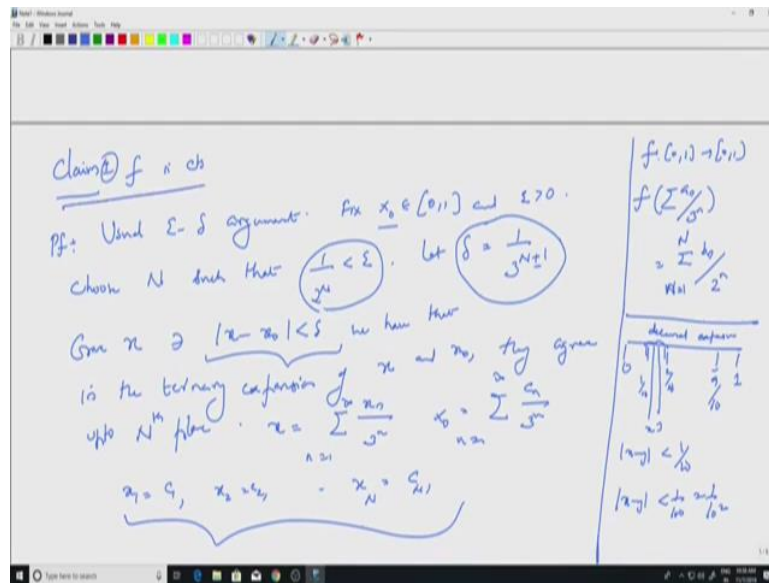 Note1 - Windows Journal
File Edit View Insert Actions Tools Help
Claim ① f is cts
Pf: Usual ε-δ argument. Fix x₀ ∈ [0,1] and ε>0.
Choose N such that 1/2^N < ε. Let δ = 1/3^{N+1}
Given x ∋ |x-x₀| < δ we have that
in the ternary expansion of x and x₀, they agree
upto Nth place. x = Σ_{n=1}^∞ x_n/3^n x₀ = Σ_{n=1}^∞ c_n/3^n
x₁ = c₁, x₂ = c₂, - x_N = c_N,
f: [0,1] → [0,1]
f(Σ a_n/3^n)
= Σ_{n=1}^N b_n/2^n
decimal expansion
0 1/10 2/10 9/10 1
x y
|x-y| < 1/10
|x-y| < 1/100 = 1/10²
Type here to search
ENG